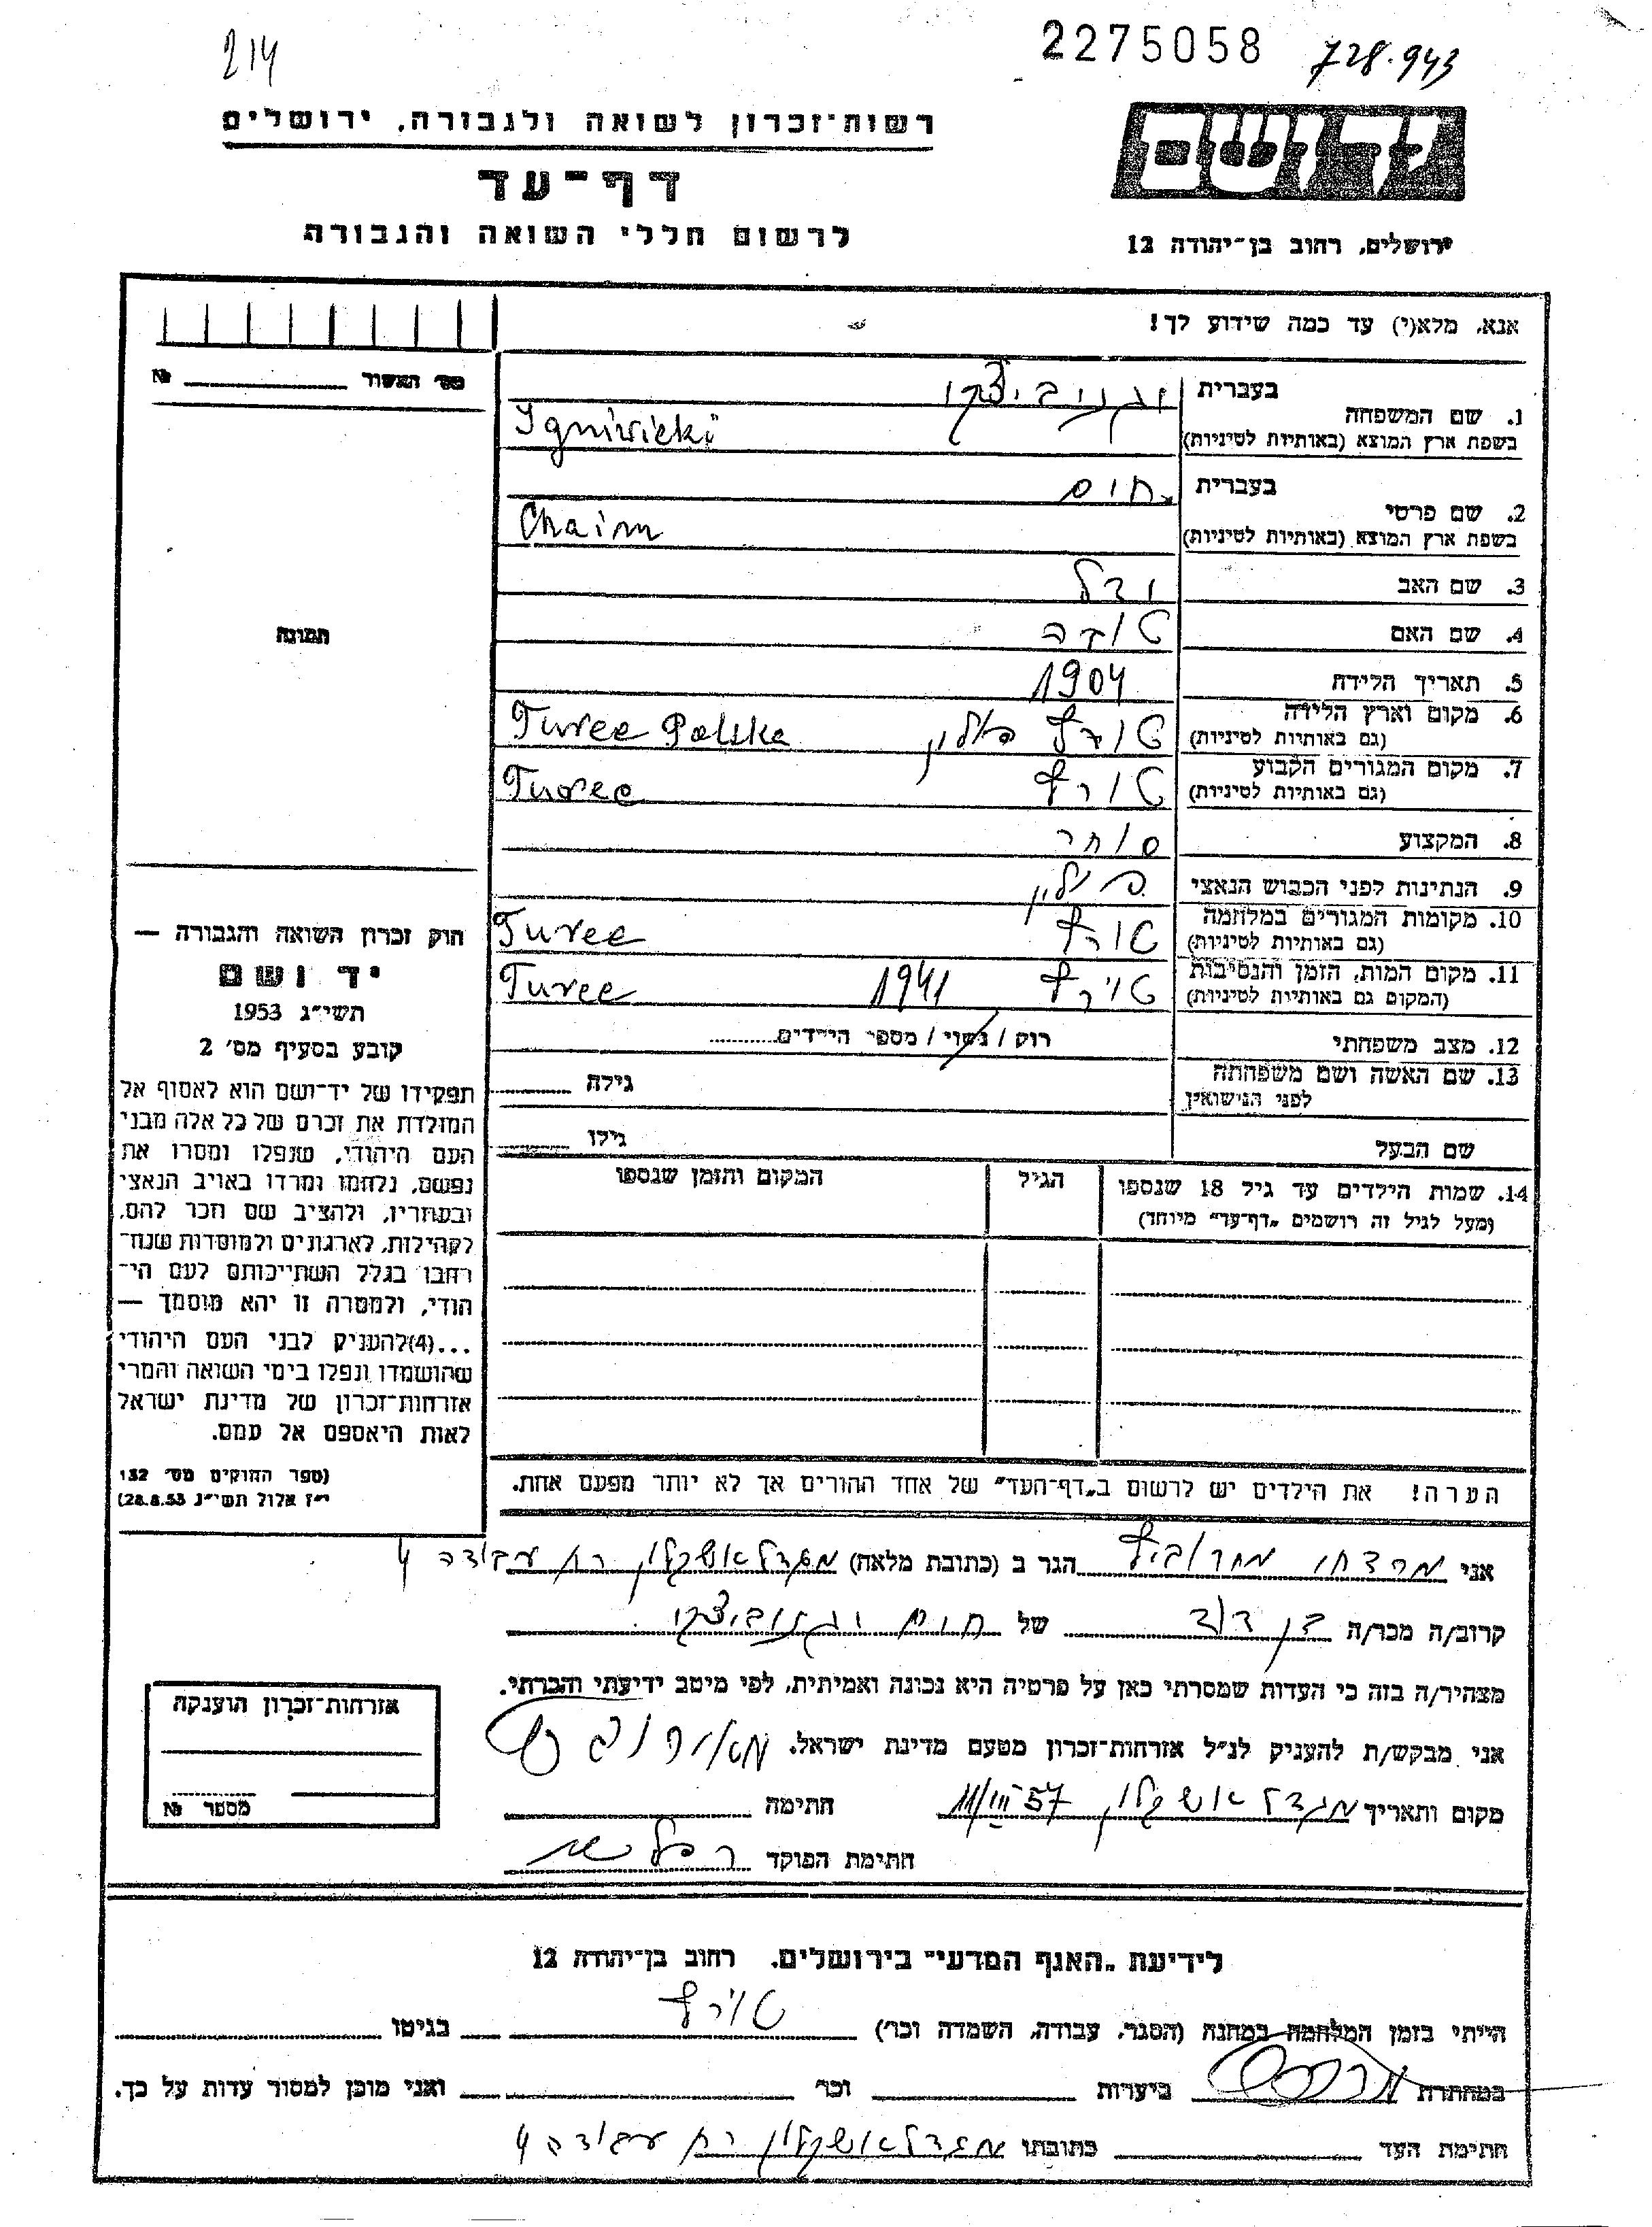 214
2275058
728.943
רשות־זכרון לשואה ולגבורה, ירושלים
יד ושם
דף־עד
לרשום חללי השואה והגבורה
ירושלים, רחוב בן־יהודה 12
אנא, מלא(י) עד כמה שידוע לך!
מס׳ האשור № 
בעברית
1. שם המשפחה
Igniwicki
בשפת ארץ המוצא (באותיות לטיניות)
בעברית חיים
2. שם פרטי
Chaim
בשפת ארץ המוצא (באותיות לטיניות)
3. שם האב
תמונה
4. שם האם
5. תאריך הלידה 1904
6. מקום וארץ הלידה טורץ פולין Turec Polska
(גם באותיות לטיניות)
7. מקום המגורים הקבוע טורץ Turec
(גם באותיות לטיניות)
8. המקצוע סוחר
9. הנתינות לפני הכבוש הנאצי פולין
10. מקומות המגורים במלחמה טורץ Turec
(גם באותיות לטיניות)
11. מקום המות, הזמן והנסיבות טורץ 1941 Turec
(המקום גם באותיות לטיניות)
12. מצב משפחתי רוק / נשוי / מספר הילדים
13. שם האשה ושם משפחתה גילה
לפני הנישואין
שם הבעל גילו
14. שמות הילדים עד גיל 18 שנספו הגיל המקום והזמן שנספו
(מעל לגיל זה רושמים „דף־עד" מיוחד)
חוק זכרון השואה והגבורה —
יד ושם
תשי״ג 1953
קובע בסעיף מס׳ 2
תפקידו של יד־ושם הוא לאסוף אל
המולדת את זכרם של כל אלה מבני
העם היהודי, שנפלו ומסרו את
נפשם, נלחמו ומרדו באויב הנאצי
ובעוזריו, ולהציב שם וזכר להם,
לקהילות, לארגונים ולמוסדות שנח־
רבו בגלל השתייכותם לעם הי־
הודי, ולמטרה זו יהא מוסמך —
...(4)להעניק לבני העם היהודי
שהושמדו ונפלו בימי השואה והמרי
אזרחות־זכרון של מדינת ישראל
לאות היאספם אל עמם.
(ספר החוקים מס׳ 132
י״ז אלול תשי״ג 28.8.53)
הערה! את הילדים יש לרשום ב„דף־העד" של אחד ההורים אך לא יותר מפעם אחת.
אני מרדחי הגר ב (כתובת מלאה) מגדל אשקלון רח עבודה 4
קרוב/ה מכר/ה בן דוד של חיים
מצהיר/ה בזה כי העדות שמסרתי כאן על פרטיה היא נכונה ואמיתית, לפי מיטב ידיעתי והכרתי.
אני מבקש/ת להעניק לנ״ל אזרחות־זכרון מטעם מדינת ישראל.
מקום ותאריך מגדל אשקלון 11/III 57 חתימה
חתימת הפוקד
אזרחות־זכרון הוענקה
מספר №
לידיעת „האגף המדעי" בירושלים, רחוב בן־יהודה 12
הייתי בזמן המלחמה במחנה (הסגר, עבודה, השמדה וכר׳) טורץ בגיטו
במחתרת ביערות וכר׳ ואני מוכן למסור עדות על כך.
חתימת העד כתובתו מגדל אשקלון רח עבודה 4